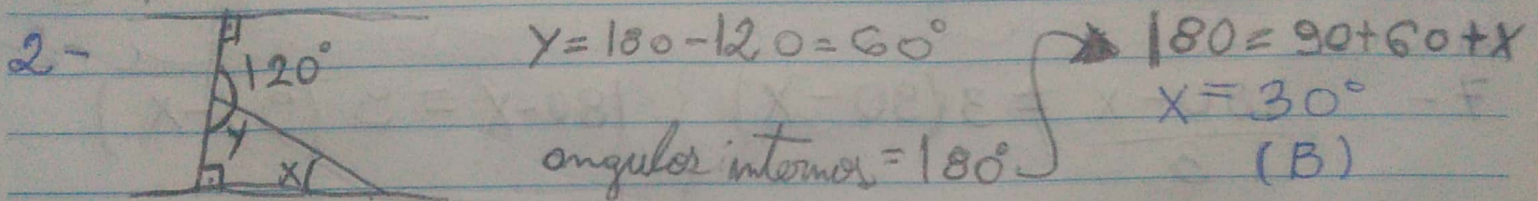 2-
120°
y
x
y = 180 - 120 = 60°
angulos internos = 180°
180 = 90 + 60 + x
x = 30°
(B)